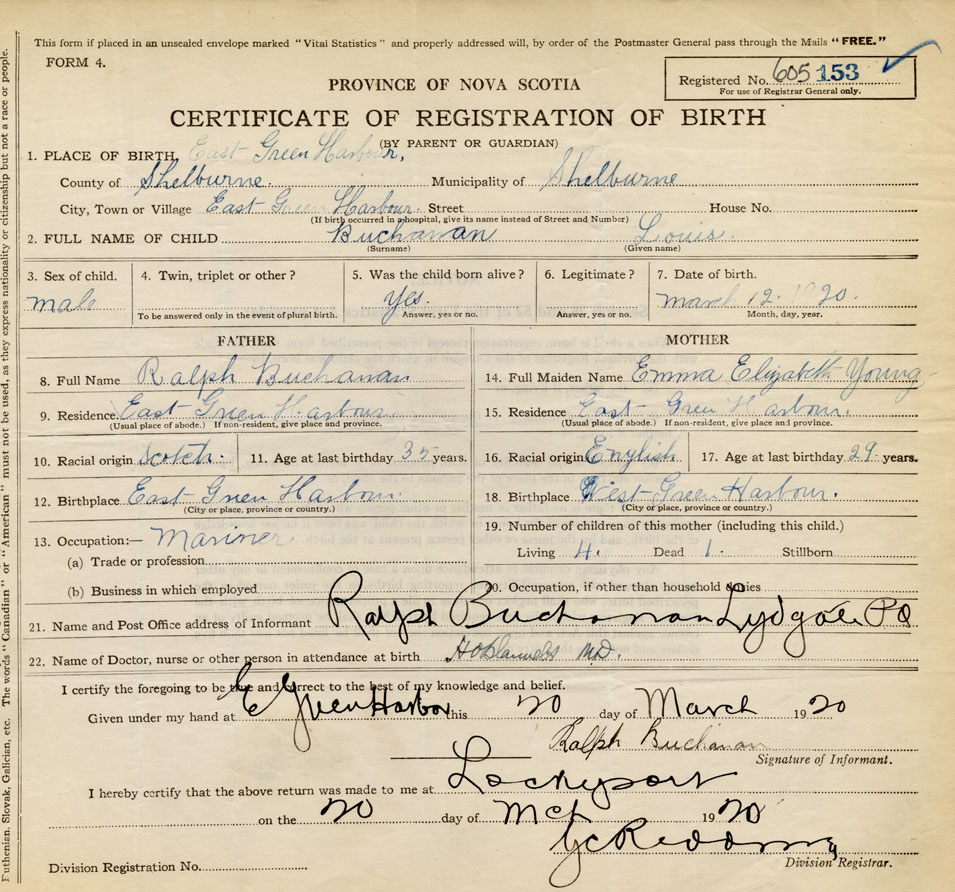 This form if placed in an unsealed envelope marked "Vital Statistics" and properly addressed will, by order of the Postmaster General pass through the Mails "FREE."
FORM 4.
Registered No. 605 153
For use of Registrar General only.
PROVINCE OF NOVA SCOTIA
CERTIFICATE OF REGISTRATION OF BIRTH
(BY PARENT OR GUARDIAN)
1. PLACE OF BIRTH, East Green Harbour,
County of Shelburne. Municipality of Shelburne
City, Town or Village East Green Harbour. Street House No.
(If birth occurred in a hospital, give its name instead of Street and Number)
2. FULL NAME OF CHILD Buchanan Louis.
(Surname) (Given name)
3. Sex of child. 4. Twin, triplet or other? 5. Was the child born alive? 6. Legitimate? 7. Date of birth.
male Yes. March 12. 1920.
To be answered only in the event of plural birth. Answer, yes or no. Answer, yes or no. Month, day, year.
FATHER MOTHER
8. Full Name Ralph Buchanan 14. Full Maiden Name Emma Elizabeth Young
9. Residence East Green Harbour. 15. Residence East Green Harbour.
(Usual place of abode.) If non-resident, give place and province. (Usual place of abode.) If non-resident, give place and province.
10. Racial origin Scotch. 11. Age at last birthday 35 years. 16. Racial origin English 17. Age at last birthday 29 years.
12. Birthplace East Green Harbour. 18. Birthplace West Green Harbour.
(City or place, province or country.) (City or place, province or country.)
13. Occupation:— Mariner 19. Number of children of this mother (including this child.)
(a) Trade or profession Living 4. Dead 1. Stillborn
(b) Business in which employed 20. Occupation, if other than household duties
21. Name and Post Office address of Informant Ralph Buchanan Lydgate PO
22. Name of Doctor, nurse or other person in attendance at birth MD.
I certify the foregoing to be true and correct to the best of my knowledge and belief.
Given under my hand at E Green Harbor this 20 day of March 1920
Ralph Buchanan
Signature of Informant.
I hereby certify that the above return was made to me at Lockeport
on the 20 day of Mch 1920
Division Registration No. Division Registrar.
Futhenian, Slovak, Galician, etc. The words "Canadian" or "American" must not be used, as they express nationality or citizenship but not a race or people.